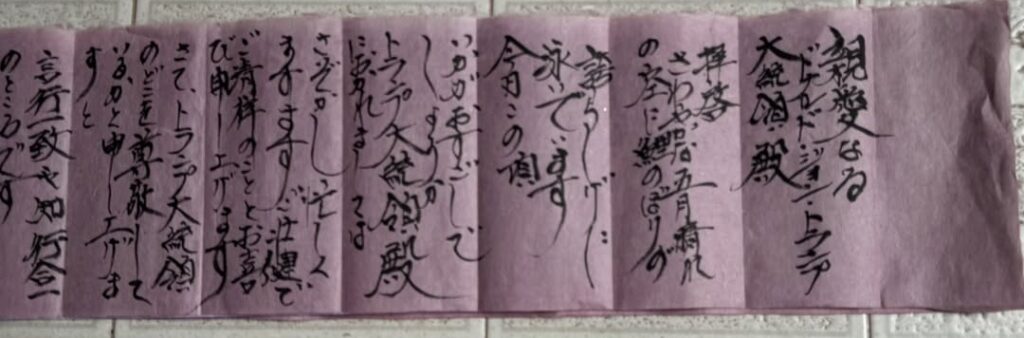 親愛なる
ドナルド・ジョン・トランプ
大統領殿
拝啓
さわやかな五月晴れ
の空に鯉のぼりが
誇らしげに
泳いでいます
今日この頃
いかがおすごしで
しょうか
トランプ大統領殿
におかれましては
さぞかし忙しく
ますますご壮健で
ご清祥のこととお喜
び申し上げます
さて、トランプ大統領
のどこを尊敬して
いるかと申し上げま
すと
言行一致や知行合一
のところです